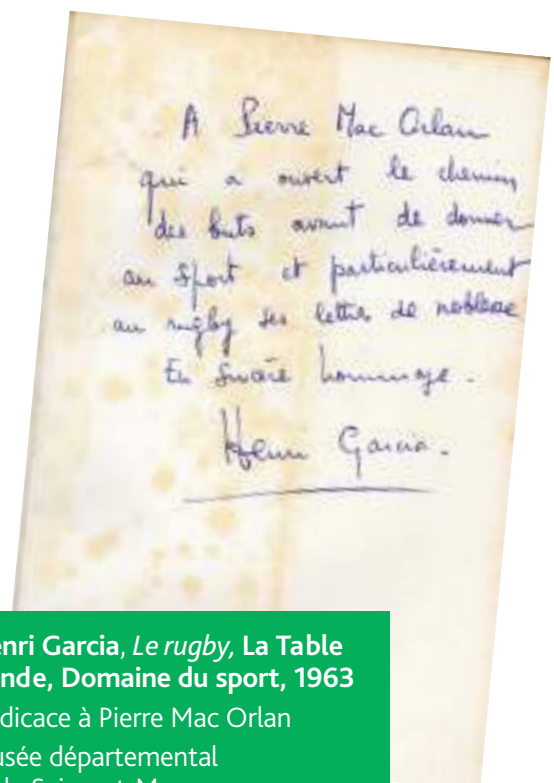 A Pierre Mac Orlan
qui a ouvert le chemin
des buts avant de donner
au sport et particulièrement
au rugby ses lettres de noblesse
En sincère hommage.
Henri Garcia.
enri Garcia, Le rugby, La Table
nde, Domaine du sport, 1963
dicace à Pierre Mac Orlan
usée départemental